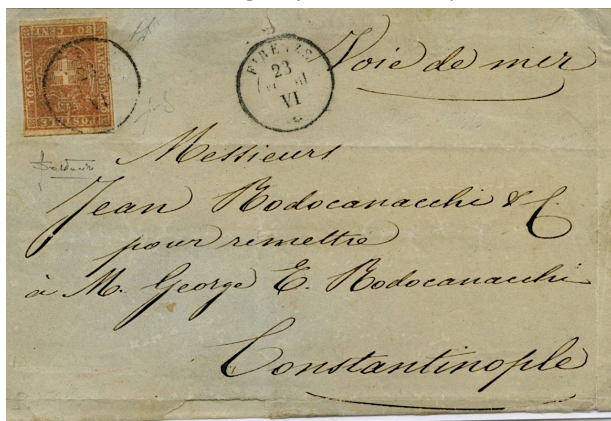 80 CENT
TOSCANO
FIRENZE
23
VI
Voie de mer
Messieurs
Jean Rodocanacchi & C
pour remettre
à M. George E. Rodocanacchi
Constantinople